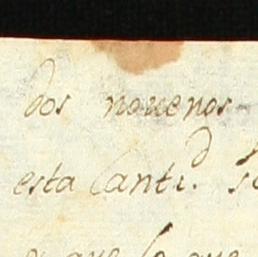 dos novenos
esta Canti.d
que lo que